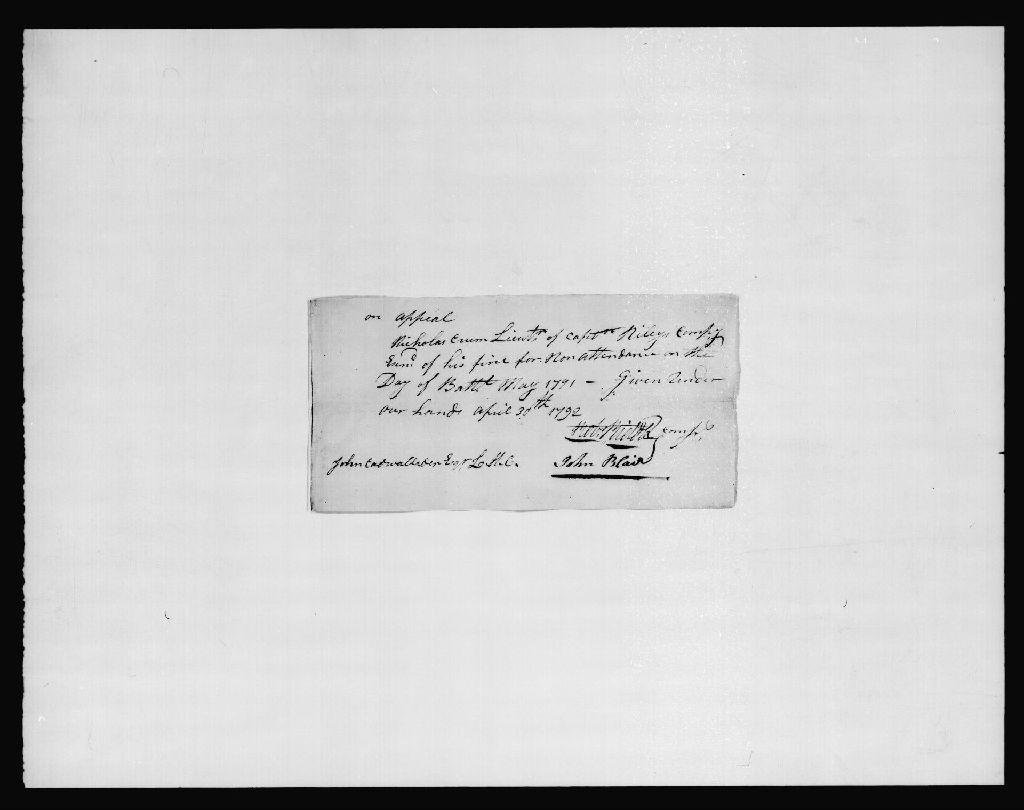 on appeal
Nicholas Crum Lieutt of Captn Rileys Compy
Exond of his fine for Non Attendance on the
Day of Battt May 1791 – Given Under
our hands April 30th 1792
John Cadwallader Esqr L H.C. John Blair